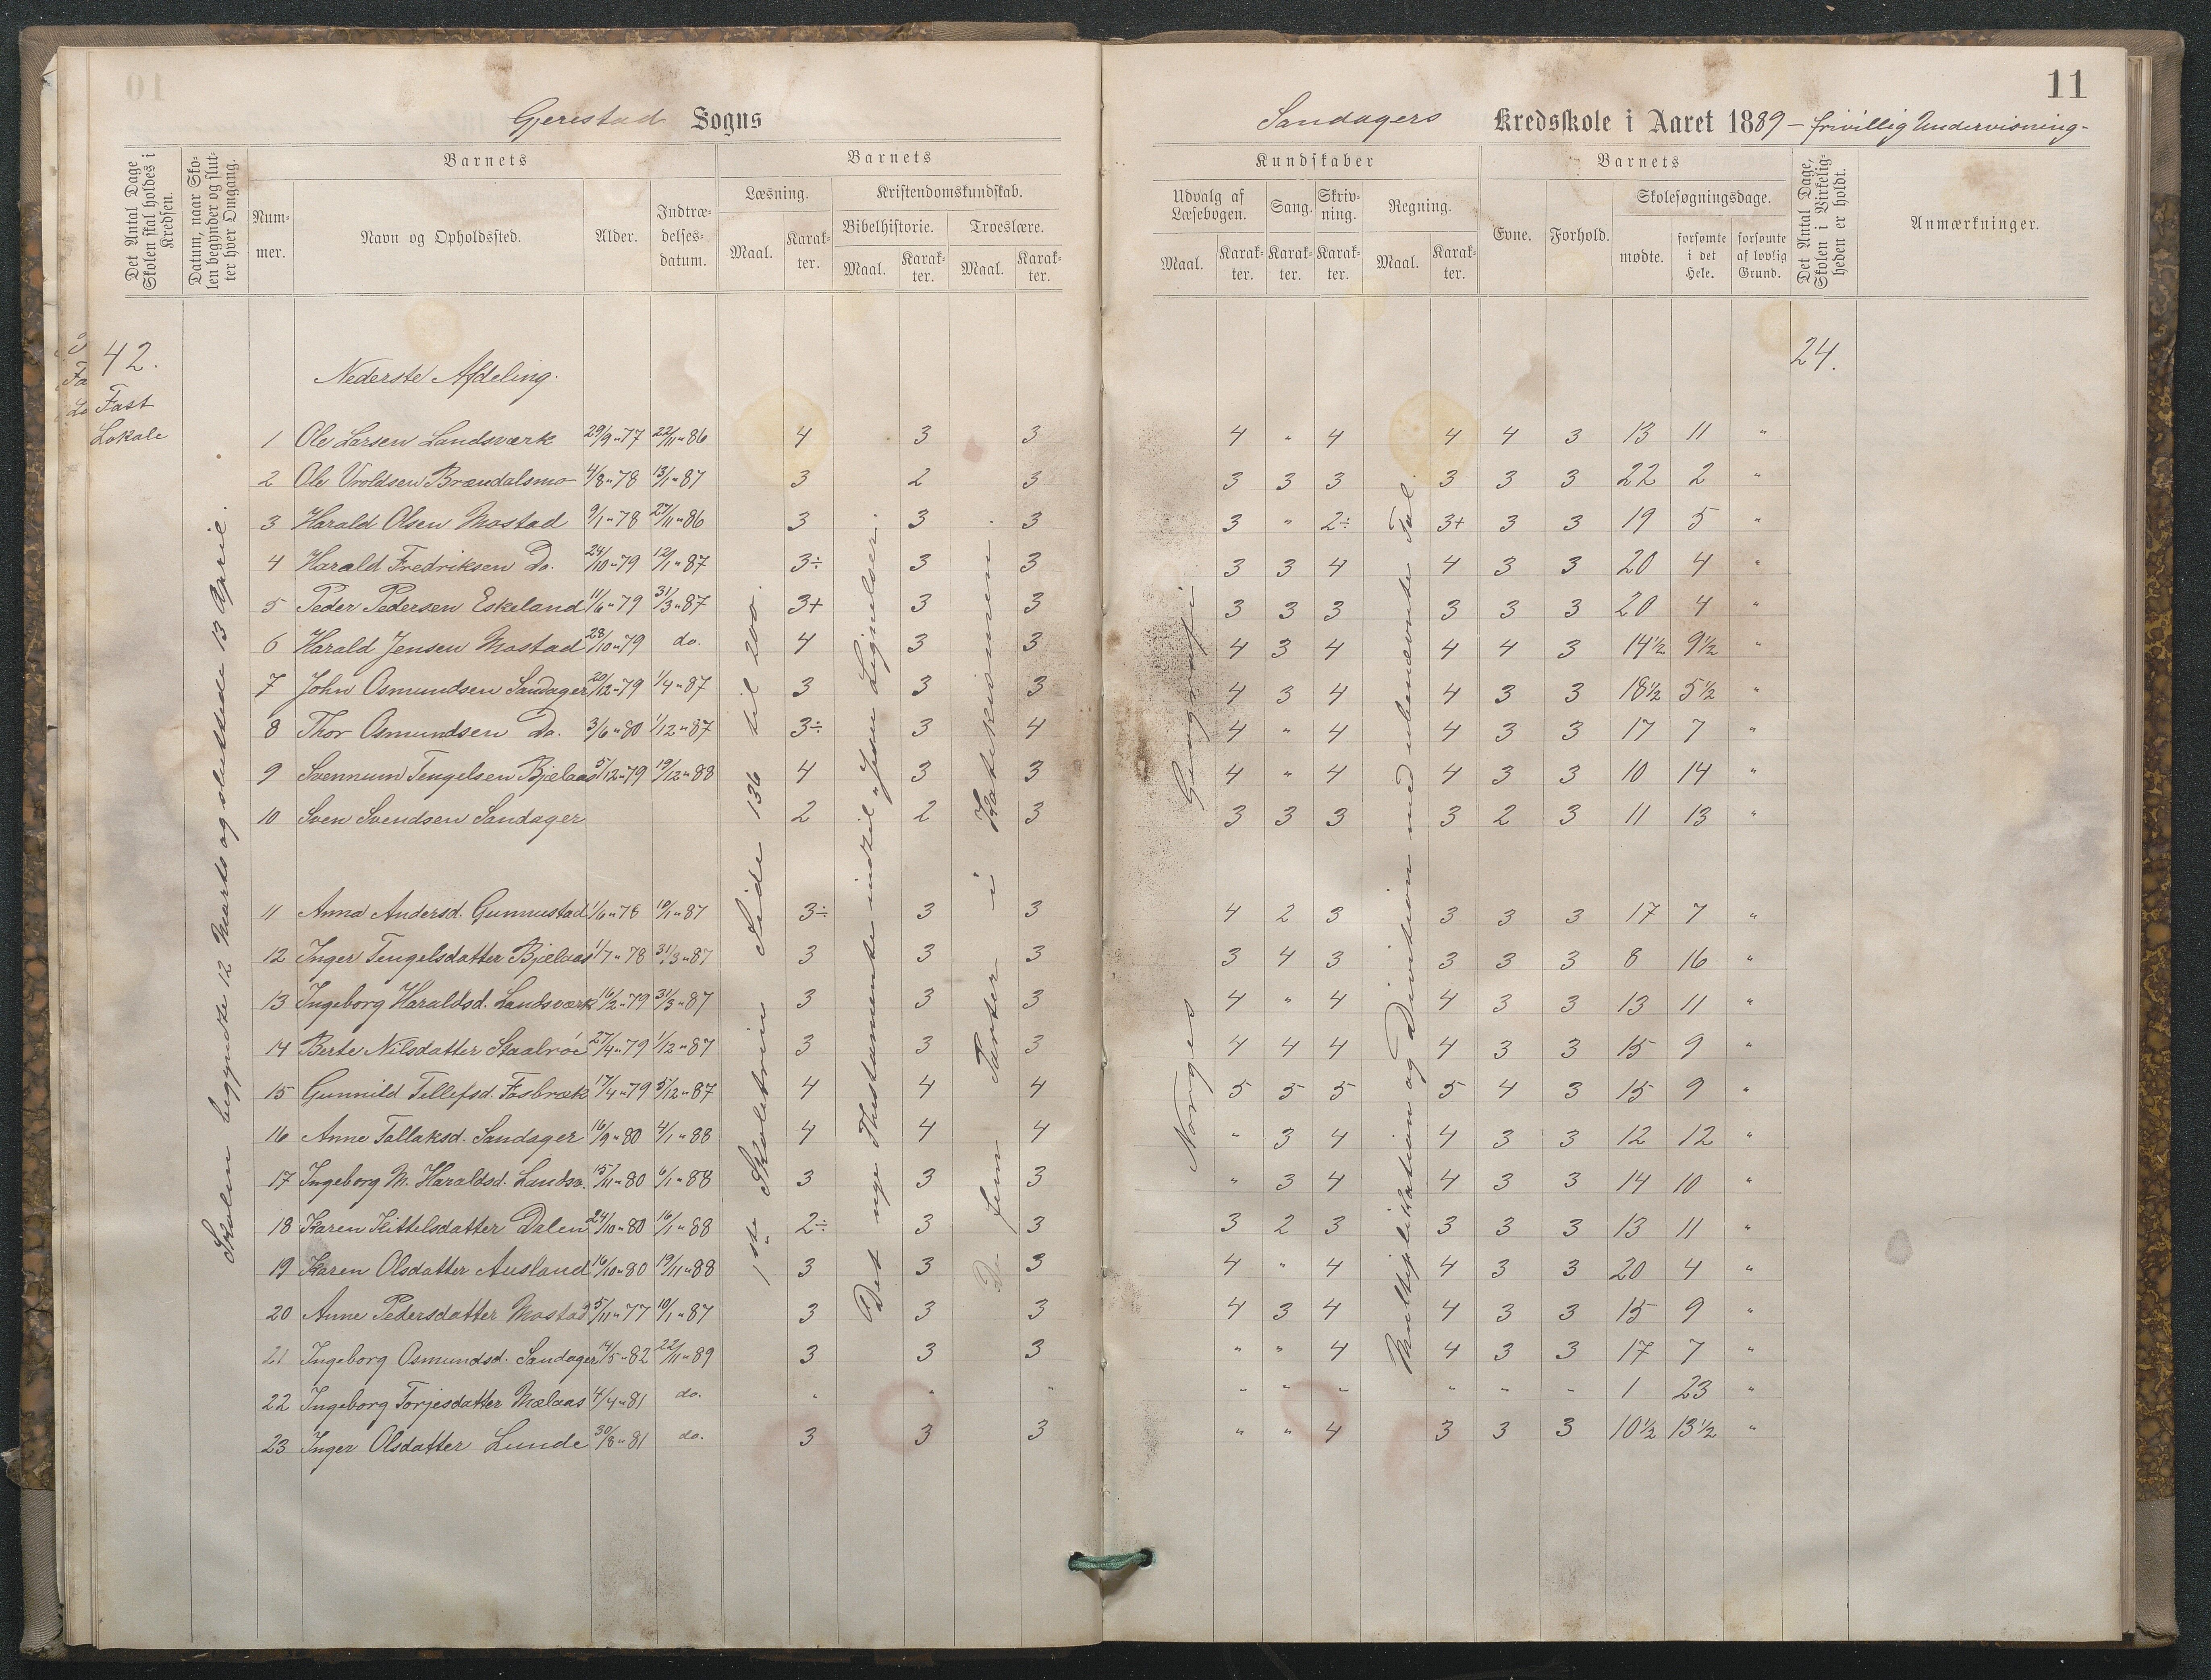 10
Gjerestad Sogns
Det Antal Dage Skolen skal holdes i Kredsen.
Datum, naar Skolen begynder og slutter hver Omgang.
Barnets
Nummer.
Navn og Opholdssted.
Alder.
Indtrædelsesdatum.
Barnets
Læsning.
Maal. Karakter.
Kristendomskundskab.
Bibelhistorie. Troeslære.
Maal. Karakter. Maal. Karakter.
42.
Fast
Lokale
Skolen begyndte 12 Marts og sluttede 13 April.
1ste Skoletrin Side 136 til 200.
Det nye Thestamente indtil "Jesu Lignelser".
De fem Parter i Katekismen.
Nederste Afdeling.
1 Ole Larsen Landsværk 29/9"77 22/11"86 4 3 3
2 Ole Vroldsen Brændalsmo 4/8"78 13/1"87 3 2 3
3 Harald Olsen Mostad 9/1"78 27/11"86 3 3 3
4 Harald Fredriksen Do. 24/10"79 12/1"87 3÷ 3 3
5 Peder Pedersen Eskeland 11/6"79 31/3"87 3+ 3 3
6 Harald Jensen Mostad 28/10"79 do. 4 3 3
7 John Osmundsen Sandager 20/12"79 1/4"87 3 3 3
8 Thor Osmundsen Do. 3/6"80 1/12"87 3÷ 3 4
9 Svennum Tengelsen Bjelaas 5/12"79 19/12"88 4 3 3
10 Sven Svendsen Sandager 2 2 3
11 Anna Andersd. Gunnustad 1/6"78 10/1"87 3÷ 3 3
12 Inger Tengelsdatter Bjælaas 1/7"78 31/3"87 3 3 3
13 Ingeborg Haraldsd. Landsværk 16/2"79 31/3"87 3 3 3
14 Berte Nilsdatter Staalrøe 27/4"79 1/12"87 3 3 3
15 Gunnild Tellefsd. Fosbræk 17/4"79 5/12"87 4 4 4
16 Anne Tallaksd. Sandager 16/9"80 4/1"88 4 4 4
17 Ingeborg M. Haraldsd. Landsv. 15/11"80 6/1"88 3 3 3
18 Karen Kittelsdatter Dalen 24/10"80 16/1"88 2÷ 3 3
19 Karen Olsdatter Ausland 16/10"80 19/11"88 3 3 3
20 Anne Pedersdatter Mostad 5/11"77 10/1"87 3 3 3
21 Ingeborg Osmundsd. Sandager 14/5"82 22/11"89 3 3 3
22 Ingeborg Torjesdatter Mælaas 4/4"81 do. " " "
23 Inger Olsdatter Lunde 30/8"81 do. 3 3 3
11
Sandagers Kredsskole i Aaret 1889 – frivillig Undervisning-
Kundskaber
Udvalg af Læsebogen. Sang. Skrivning. Regning.
Maal. Karakter. Karakter. Karakter. Maal. Karakter.
Barnets
Evne. Forhold. Skolesøgningsdage.
mødte. forsømte i det Hele. forsømte af lovlig Grund.
Det Antal Dage, Skolen i Virkeligheden er holdt.
Anmærkninger.
24.
Norges Geografi
Multiplikation og Division med ubenævnte Tal.
4 " 4 4 4 3 13 11 "
3 3 3 3 3 3 22 2 "
3 " 2÷ 3+ 3 3 19 5 "
3 3 4 4 3 3 20 4 "
3 3 3 3 3 3 20 4 "
4 3 4 4 4 3 14½ 9½ "
4 3 4 4 3 3 18½ 5½ "
4 " 4 4 3 3 17 7 "
4 " 4 4 3 3 10 14 "
3 3 3 3 2 3 11 13 "
4 2 3 3 3 3 17 7 "
3 4 3 3 3 3 8 16 "
4 " 4 4 3 3 13 11 "
4 4 4 4 3 3 15 9 "
5 5 5 5 4 3 15 9 "
" 3 4 4 3 3 12 12 "
" 3 4 4 3 3 14 10 "
3 2 3 3 3 3 13 11 "
4 " 4 4 3 3 20 4 "
4 3 4 4 3 3 15 9 "
" " 4 4 3 3 17 7 "
" " " " " " 1 23 "
" " 4 3 3 3 10½ 13½ "